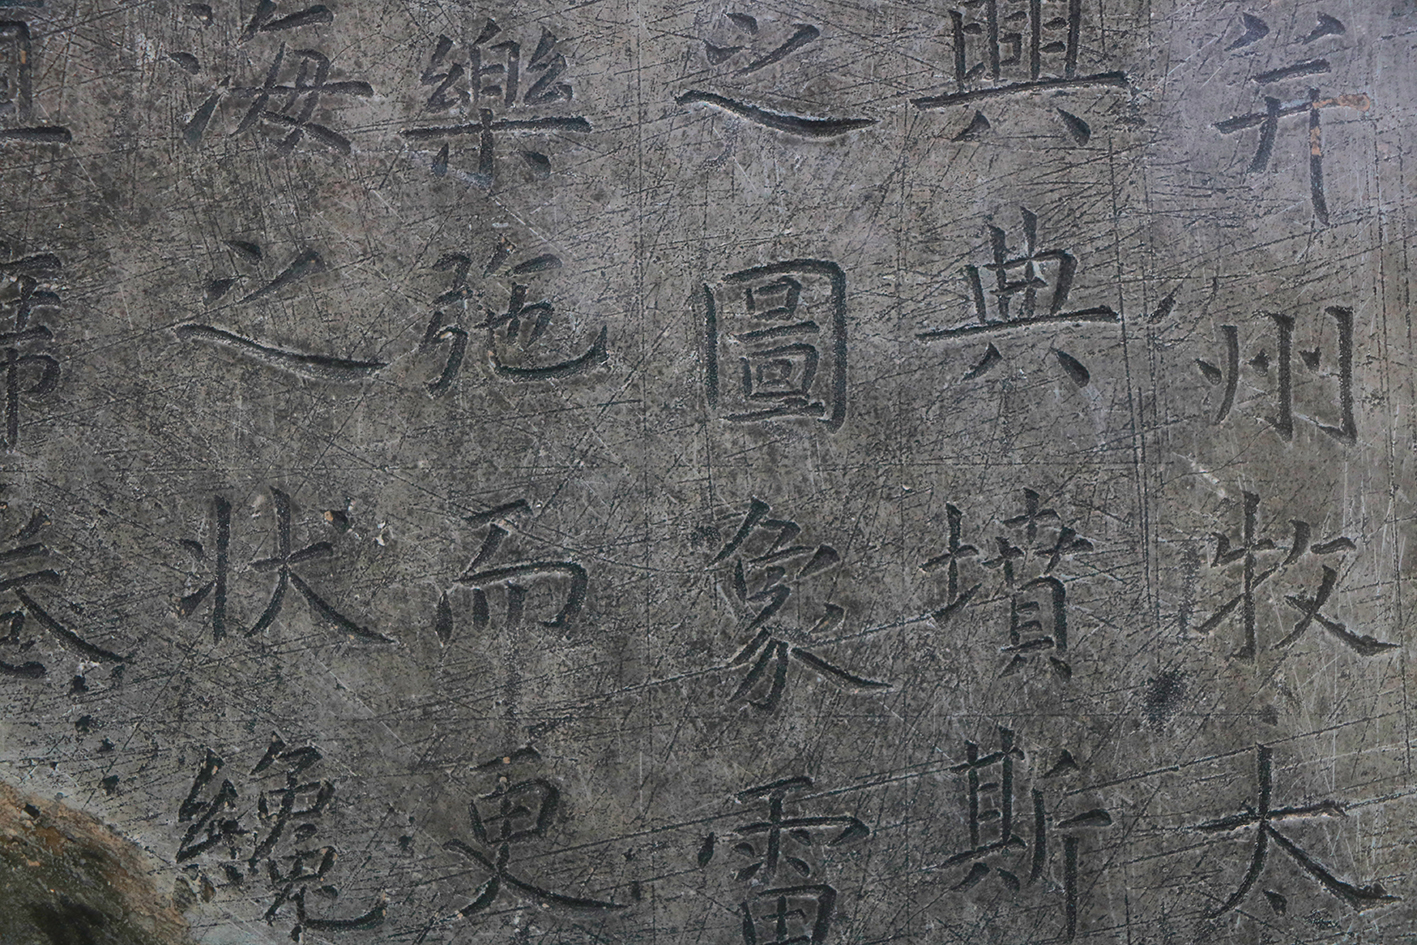 并州牧太
興典墳斯
之圖象雷
樂弛而更
海之狀纔